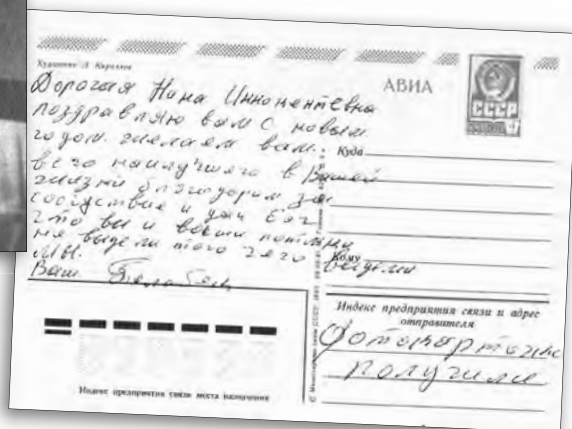 Художник Л. Кириллов
АВИА
СССР
Дорогая Нина Инонентевна
поздравляю вам с новым
годом. желаем вам.
всего наилудчшего в Вашей
жизни благодарим за
сочуствие и дай бог
что вы и ваши потомки
не видели того чего видели
мы.
Ваш
Куда
Кому
Индекс предприятия связи и адрес
отправителя
Фотокарточки
получили
Индекс предприятия связи места назначения